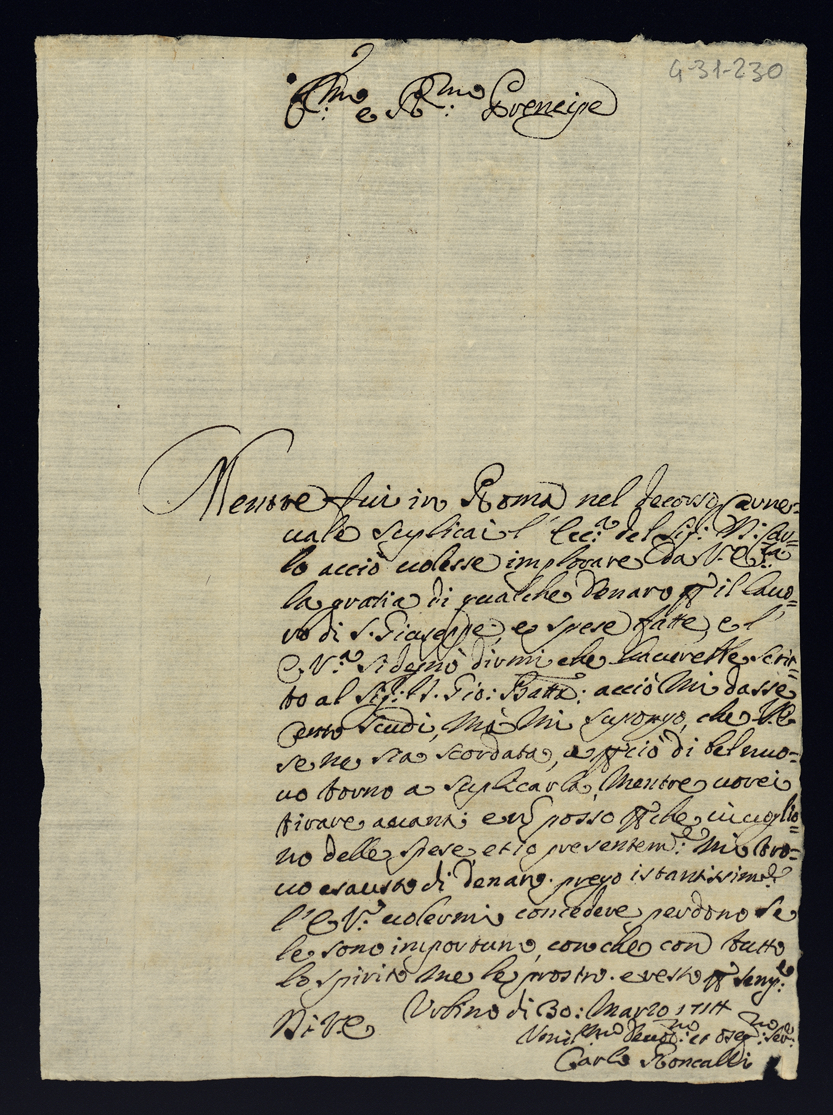 4-31-230
Em.mo e R.mo Prencipe
Mentre fui in Roma nel decorso carne=
uale suplicai l'Ecc.a del Sig:
lo acciò uolesse implorare da V. E.
la gratia di qualche denaro p il lauo=
ro di S. Giuseppe, e spese fatte, e l'
E. V.a si degnò dirmi che hauerebbe scrit=
to al Sig: Gio: Batta: acciò mi dasse
cento scudi, mà mi supongo, che V. E.
se ne sia scordata, e p ciò di bel nuo=
uo torno a suplicarla, mentre uorei
tirare auanti e n posso p che ui uoglio=
no delle spese, et io presentem.te mi tro=
uo esausto di denaro. prego istantissim.te
l'E. V.a uolermi concedere perdono se
le sono importuno, con che con tutto
lo spirito me le prostro. e resto p semp.e
Di V. E. Urbino di 30: Marzo 1714
Umil.mo Deuot.mo et oseq.mo Ser.
Carlo Roncalli